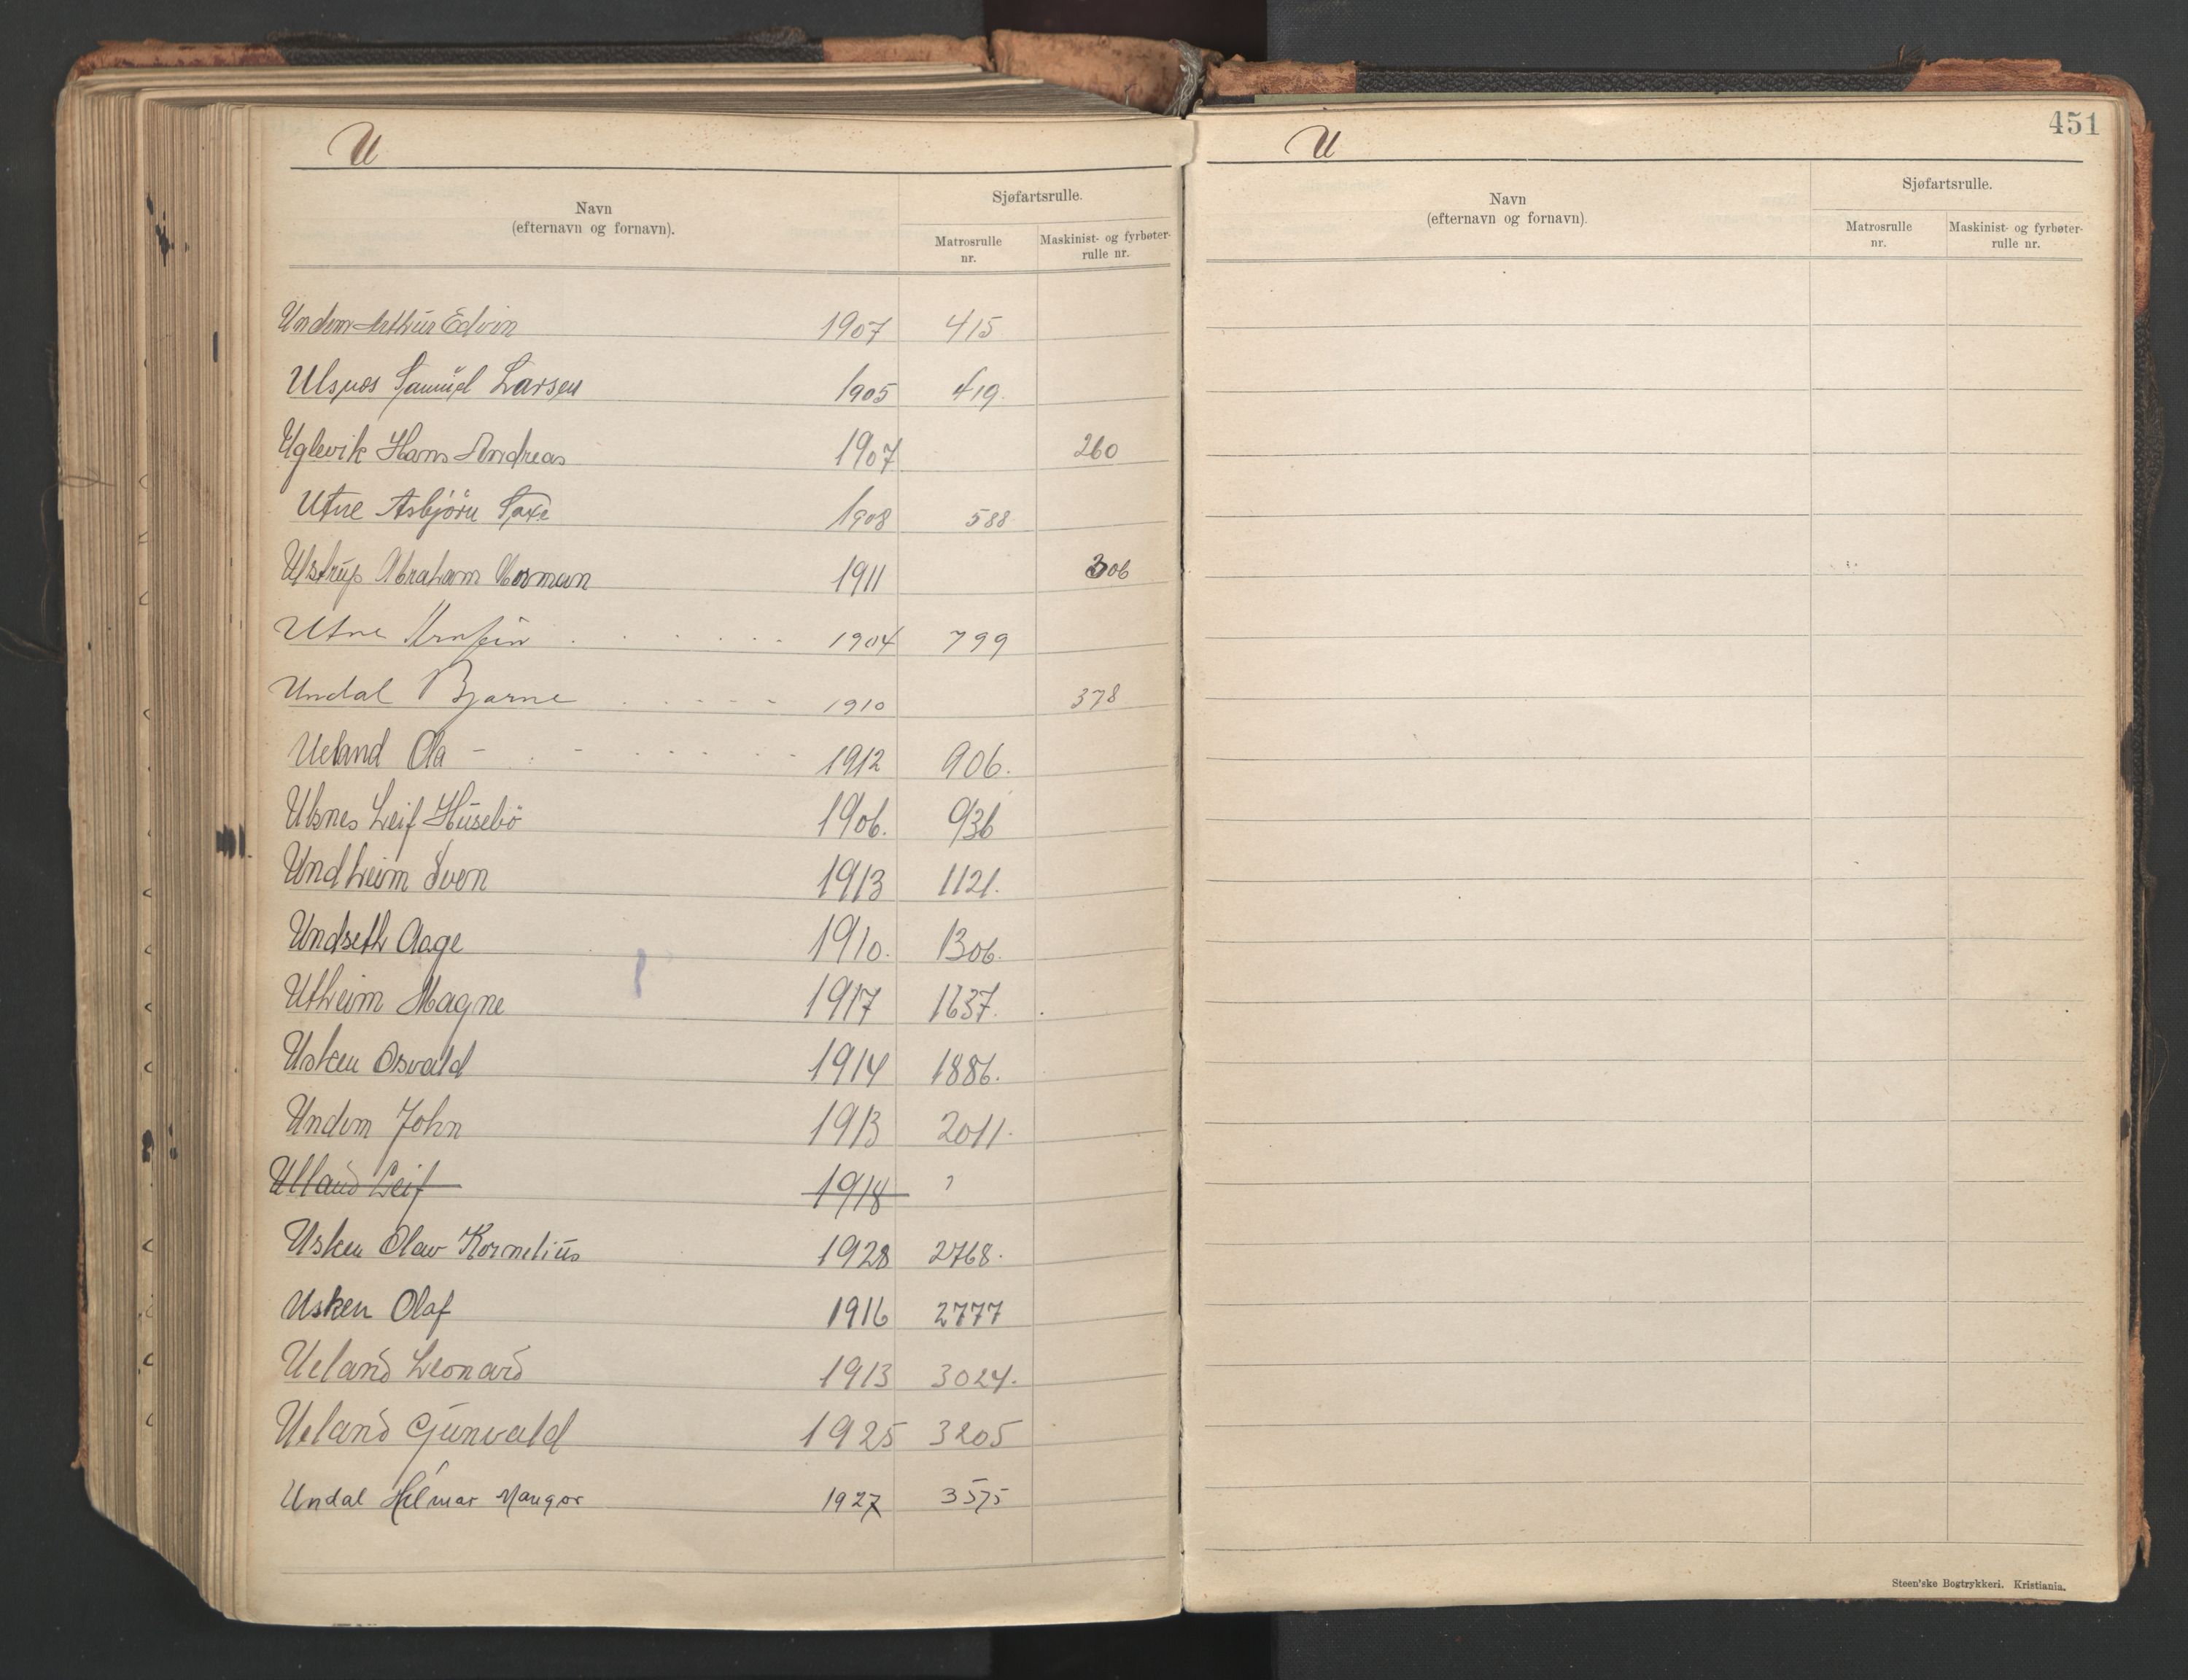 U
Navn
(efternavn og fornavn).
Sjøfartsrulle.
Matrosrulle
nr.
Maskinist- og fyrbøter-
rulle nr.
Undem Arthur Edvin 1907 415
Ulsnes Samuel Larsen 1905 419.
Uglevik Hans Andreas 1907 260
Utne Asbjørn Saxe 1908 588
Ulstrup Abraham Norman 1911 306
Utne Arnfin . . . . . . 1904 799
Undal Bjarne . . - - - 1910 378
Ueland Ola - . - . . . . - 1912 906.
Ulsnes Leif Husebö 1906. 936
Undheim Sven 1913 1121.
Undseth Aage 1910. 1306.
Utheim Magne 1917 1637.
Usken Osvald 1914 1886.
Undem John 1913 2011.
Ulland Leif 1918
Usken Olav Kornelius 1928 2768.
Usken Olaf 1916 2777
Ueland Leonard 1913 3024.
Ueland Gunvald 1925 3205
Undal Hilmar Mangor 1927 3575
U
451
Navn
(efternavn og fornavn).
Sjøfartsrulle.
Matrosrulle
nr.
Maskinist- og fyrbøter-
rulle nr.
Steen'ske Bogtrykkeri. Kristiania.